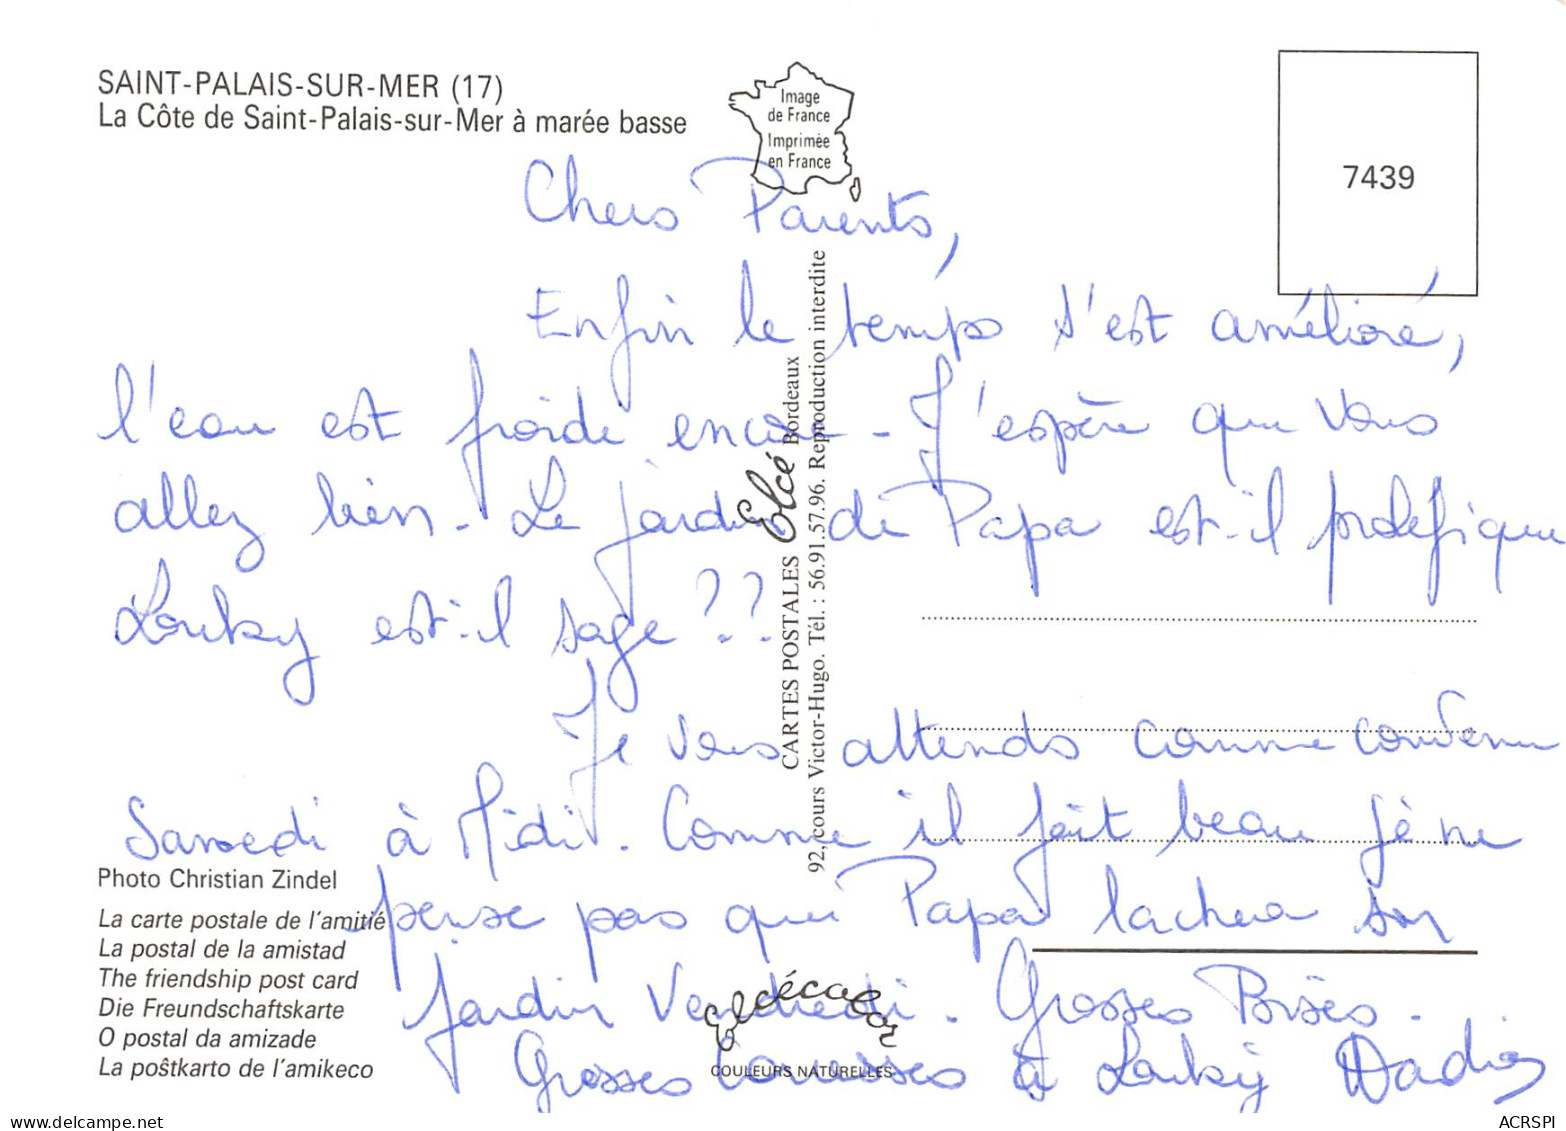 SAINT-PALAIS-SUR-MER (17)
La Côte de Saint-Palais-sur-Mer à marée basse
Image
de France
Imprimée
en France
7439
Chers Parents,
Enfin le temps s'est amélioré,
l'eau est froide encore - J'espère que vous
allez bien - Le jardin de Papa est-il prolefique
Louky est-il sage ??
Je vous attends comme convenu
Samedi à Midi. Comme il fait beau je ne
pense pas que Papa lachera son
jardin Vendredi. Grosses Bises.
Grosses Caresses à Louky
CARTES POSTALES Elcé Bordeaux
92, cours Victor-Hugo. Tél. : 56.91.57.96. Reproduction interdite
Photo Christian Zindel
La carte postale de l'amitié
La postal de la amistad
The friendship post card
Die Freundschaftskarte
O postal da amizade
La poŝtkarto de l'amikeco
elcécolor
COULEURS NATURELLES
www.delcampe.net
ACRSPI